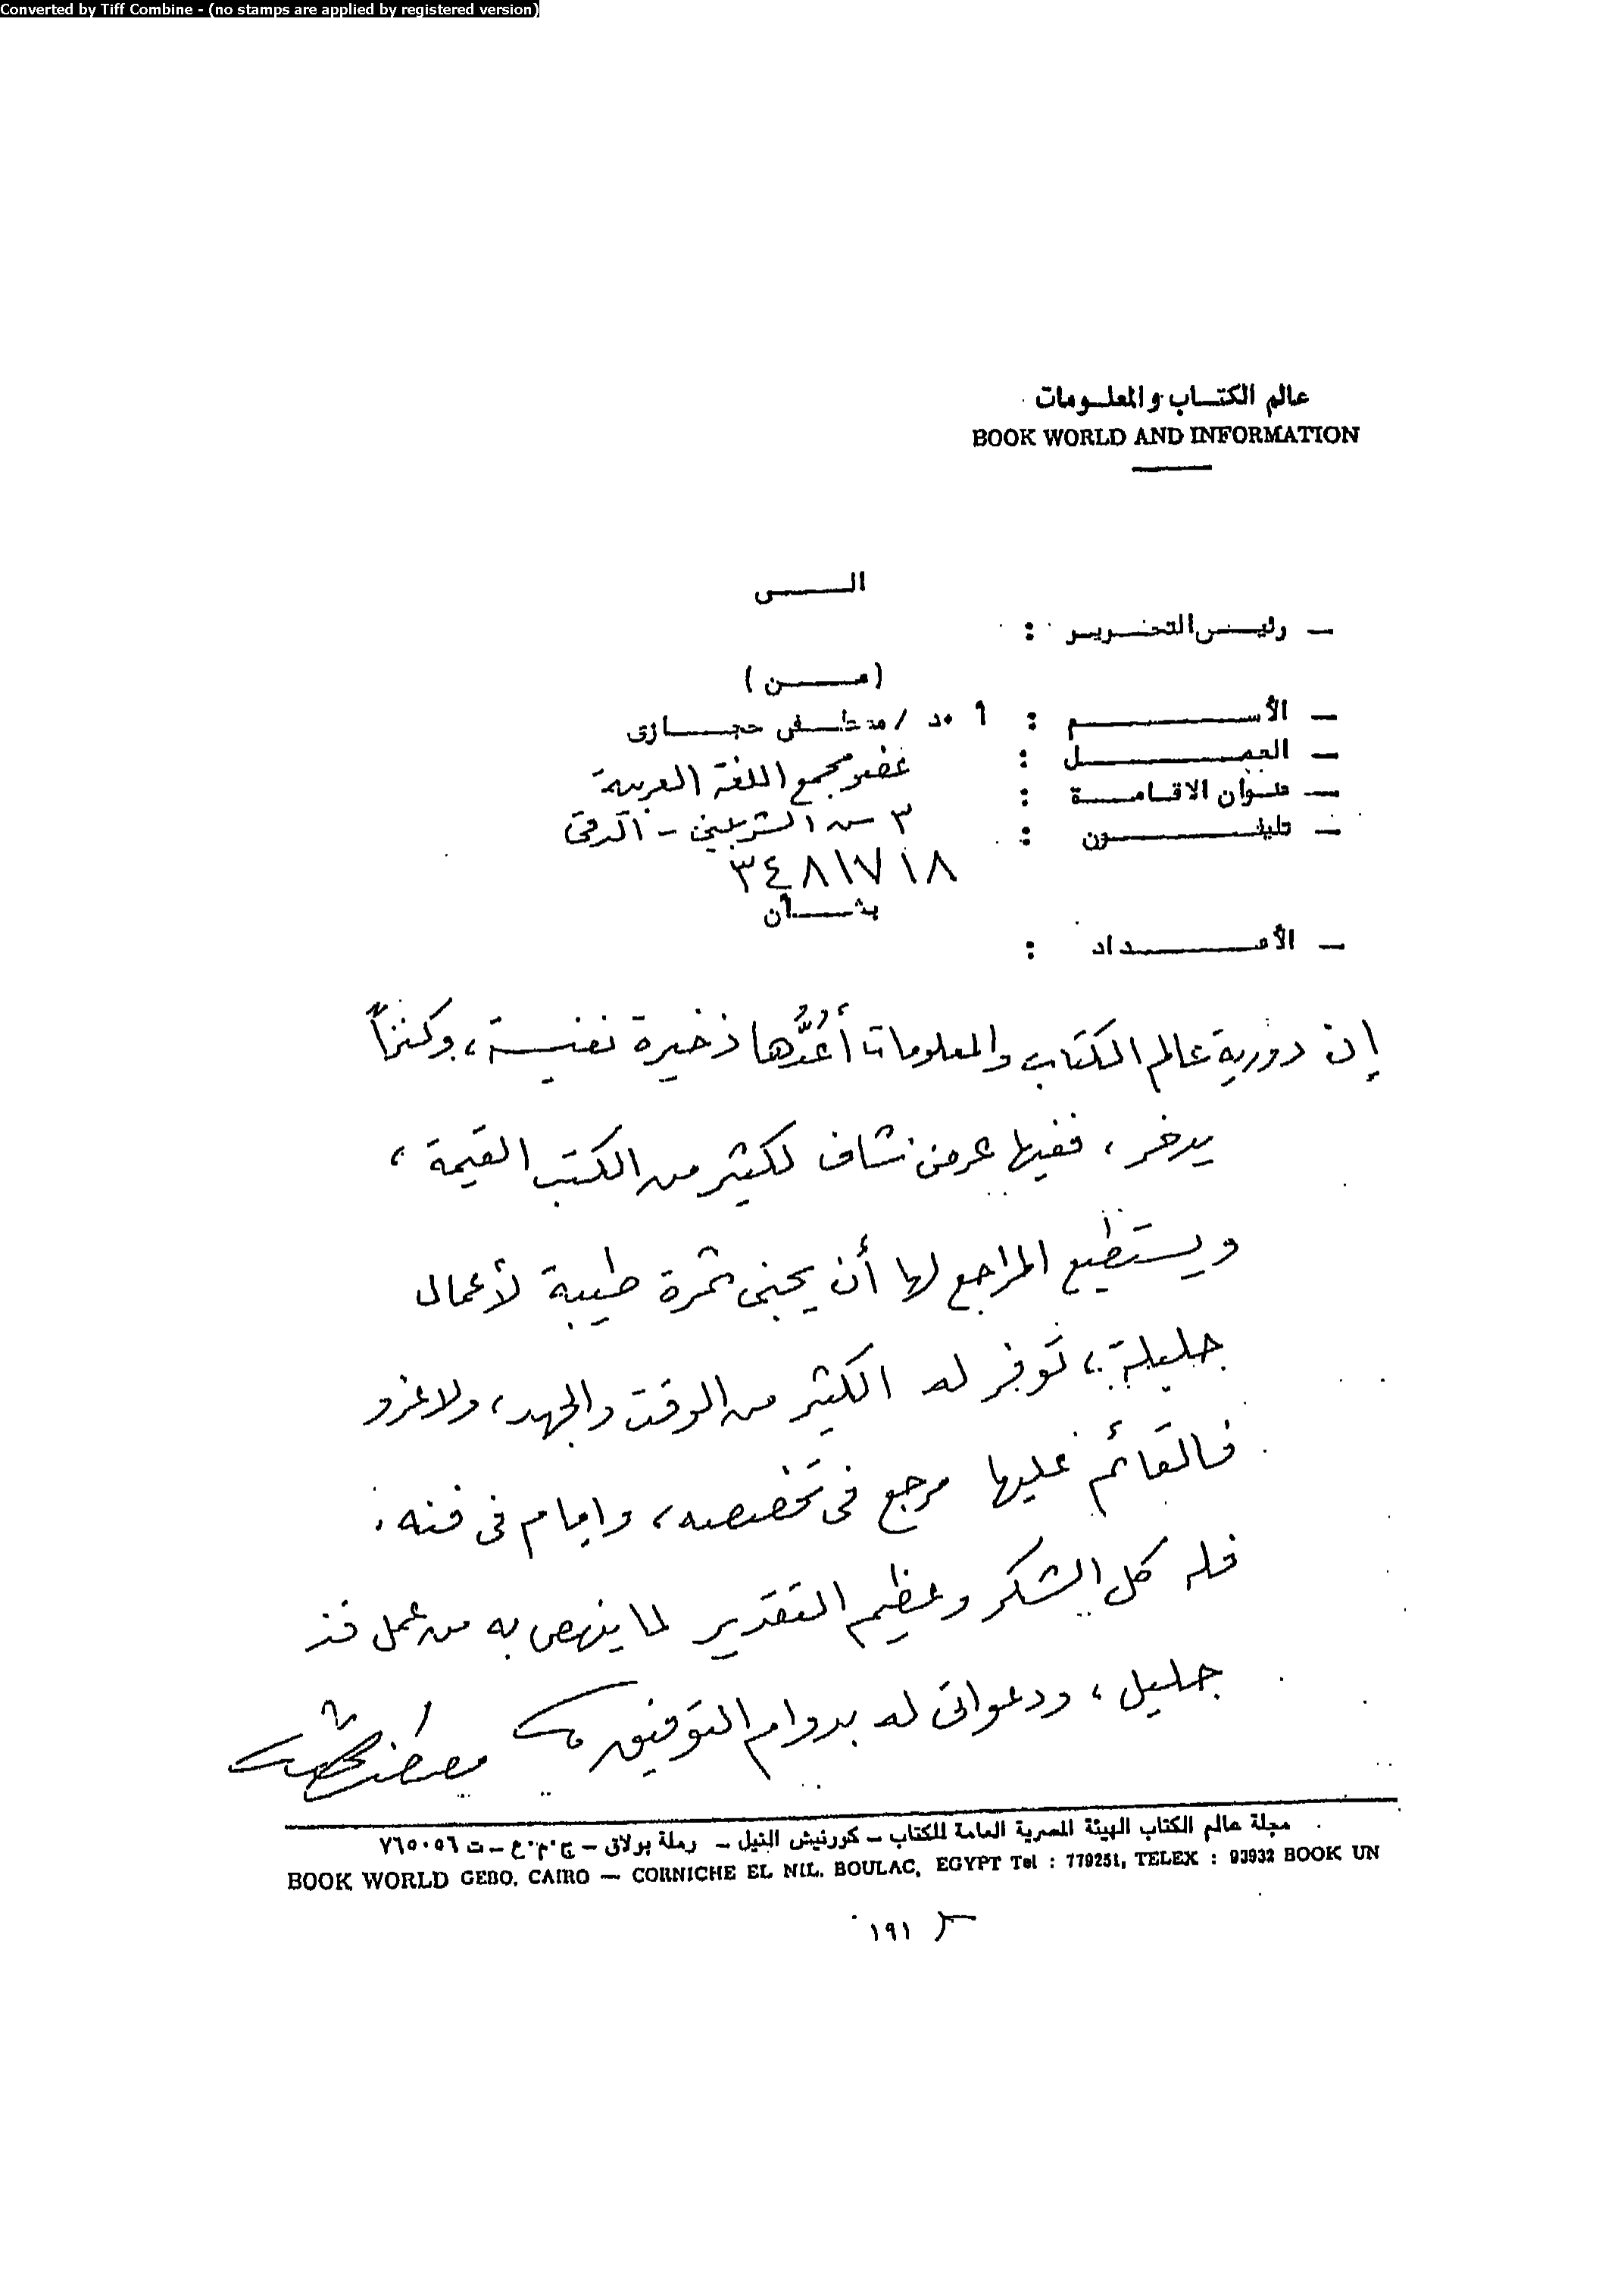 Converted by Tiff Combine - (no stamps are applied by registered version)
عالم الكتاب والمعلومات
BOOK WORLD AND INFORMATION
الى
— رئيس التحرير :
( من )
— الأسم : أ . د / مصطفى حجازى
— العمل : عضو مجمع اللغة العربية
— عنوان الاقامة : ٣ ش الشربينى - الدقى
— تليفون : ٣٤٨١٧١٨
بشأن
— الأعداد :
إن دورية عالم الكتاب والمعلومات أعُدُّها ذخيرة نفيسة ، وكنزاً
يدخر ، ففيها عرض شاف لكثير من الكتب القيمة ،
ويستطيع المراجع لها أن يجنى ثمرة طيبة لأعمال
جليلة ، توفر له الكثير من الوقت والجهد ، ولا غرو
فالقائم عليها مرجع فى تخصصه ، وإمام فى فنه .
فله كل الشكر وعظيم التقدير لما ينهض به من عمل فذ
جليل ، ودعواتى له بدوام التوفيق
مصطفى حجازى
مجلة عالم الكتاب الهيئة المصرية العامة للكتاب — كورنيش النيل — رملة بولاق — ج.م.ع — ت ٧٦٥٠٥٦
BOOK WORLD GEBO. CAIRO — CORNICHE EL NIL. BOULAC, EGYPT Tel : 779251, TELEX : 93932 BOOK UN
١٩١